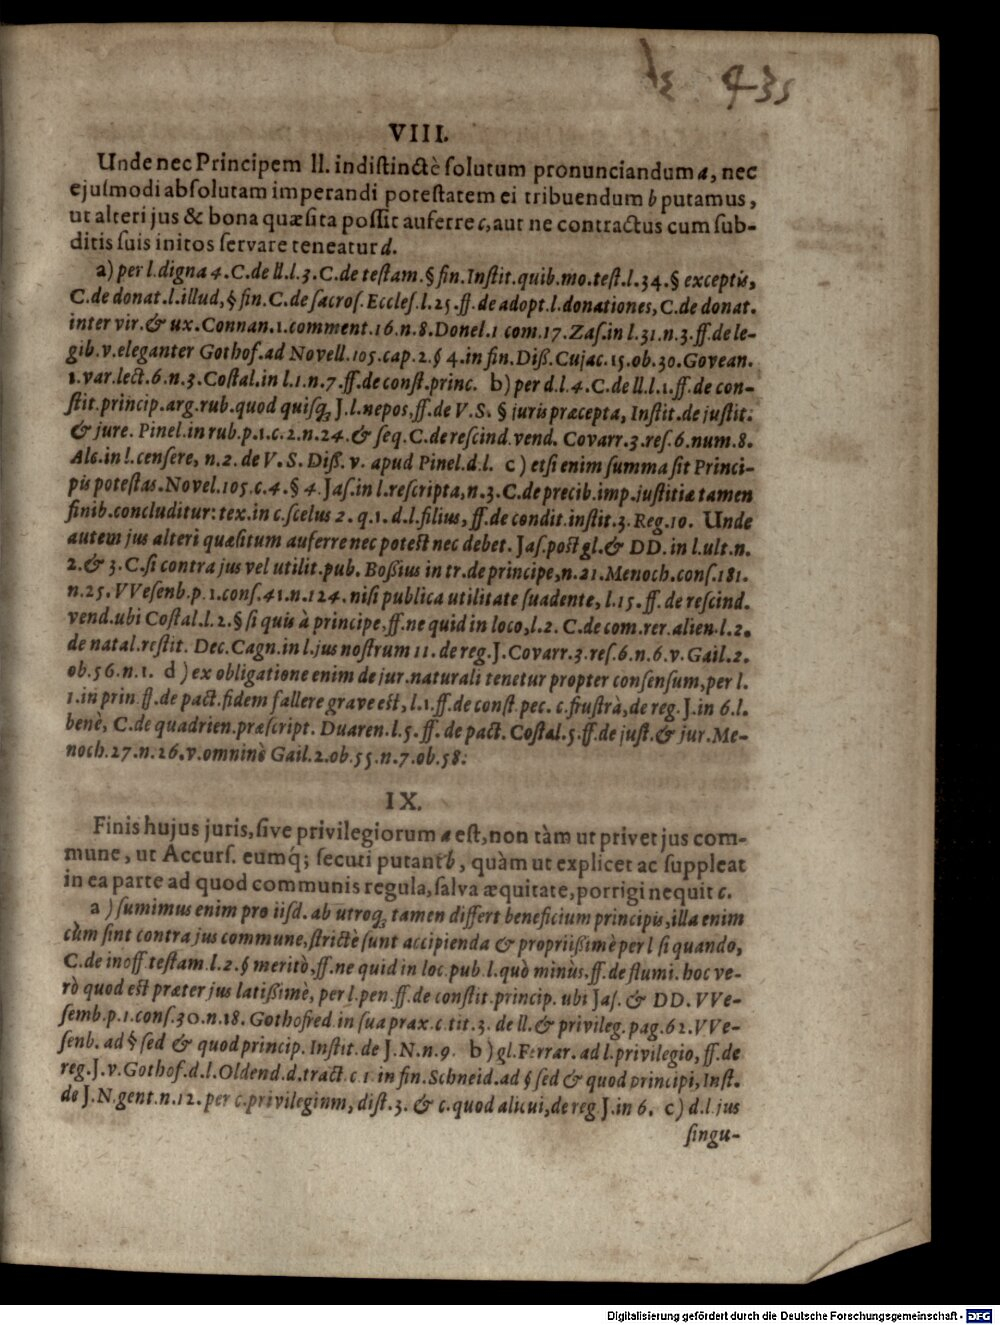 435
VIII.
Unde nec Principem ll. indistinctè solutum pronunciandum a, nec
ejusmodi absolutam imperandi potestatem ei tribuendum b putamus,
ut alteri jus & bona quæsita possit auferre c, aut ne contractus cum sub-
ditis suis initos servare teneatur d.
a) per l. digna 4. C. de ll. l. 3. C. de testam. § fin. Instit. quib. mo. test. l. 34. § exceptis,
C. de donat. l. illud, § fin. C. de sacros. Eccles. l. 25. ff. de adopt. l. donationes, C. de donat.
inter vir. & ux. Connan. 1. comment. 16. n. 8. Donel. 1 com. 17. Zas. in l. 31. n. 3. ff. de le-
gib. v. eleganter Gothof. ad Novell. 105. cap. 2. § 4. in fin. Diß. Cujac. 15. ob. 30. Govean.
1. var. lect. 6. n. 3. Costal. in l. 1. n. 7. ff. de const. princ. b) per d. l. 4. C. de ll. l. 1. ff. de con-
stit. princip. arg. rub. quod quisq; J. l. nepos, ff. de V. S. § juris præcepta, Instit. de justit.
& jure. Pinel. in rub. p. 1. c. 2. n. 24. & seq. C. de rescind. vend. Covarr. 3. res. 6. num. 8.
Alc. in l. censere, n. 2. de V. S. Diß. v. apud Pinel. d. l. c) etsi enim summa sit Princi-
pis potestas. Novel. 105. c. 4. § 4. Jas. in l. rescripta, n. 3. C. de precib. imp. justitiæ tamen
finib. concluditur: tex. in c. scelus 2. q. 1. d. l. filius, ff. de condit. instit. 3. Reg. 10. Unde
autem jus alteri quæsitum auferre nec potest nec debet. Jas. post gl. & DD. in l. ult. n.
2. & 3. C. si contra jus vel utilit. pub. Boßius in tr. de principe, n. 21. Menoch. cons. 181.
n. 25. VVesenb. p. 1. cons. 41. n. 124. nisi publica utilitate suadente, l. 15. ff. de rescind.
vend. ubi Costal. l. 2. § si quis à principe, ff. ne quid in loco, l. 2. C. de com. rer. alien. l. 2.
de natal. restit. Dec. Cagn. in l. jus nostrum 11. de reg. J. Covarr. 3. res. 6. n. 6. v. Gail. 2.
ob. 56. n. 1. d) ex obligatione enim de jur. naturali tenetur propter consensum, per l.
1. in prin. ff. de pact. fidem fallere grave est, l. 1. ff. de const. pec. c. frustrà, de reg. J. in 6. l.
benè, C. de quadrien. præscript. Duaren. l. 5. ff. de pact. Costal. 5. ff. de just. & jur. Me-
noch. 27. n. 26. v. omninò Gail. 2. ob. 55. n. 7. ob. 58.
IX.
Finis hujus juris, sive privilegiorum a est, non tàm ut privet jus com-
mune, ut Accurs. eumq́; secuti putant b, quàm ut explicet ac suppleat
in ea parte ad quod communis regula, salva æquitate, porrigi nequit c.
a) sumimus enim pro iisd. ab utroq; tamen differt beneficium principis, illa enim
cùm sint contra jus commune, strictè sunt accipienda & propriißimè per l. si quando,
C. de inoff. testam. l. 2. § meritò, ff. ne quid in loc. pub. l. quò minùs. ff. de flumi. hoc ve-
rò quod est præter jus latißimè, per l. pen. ff. de constit. princip. ubi Jas. & DD. VVe-
senb. p. 1. cons. 30. n. 18. Gothofred. in sua prax. c. tit. 3. de ll. & privileg. pag. 62. VVe-
senb. ad § sed & quod princip. Instit. de J. N. n. 9. b) gl. Ferrar. ad l. privilegio, ff. de
reg. J. v. Gothof. d. l. Oldend. d. tract. c. 1 in fin. Schneid. ad § sed & quod principi, Inst.
de J. N. gent. n. 12. per c. privilegium, dist. 3. & c. quod alicui, de reg. J. in 6. c) d. l. jus
singu-
Digitalisierung gefördert durch die Deutsche Forschungsgemeinschaft - DFG